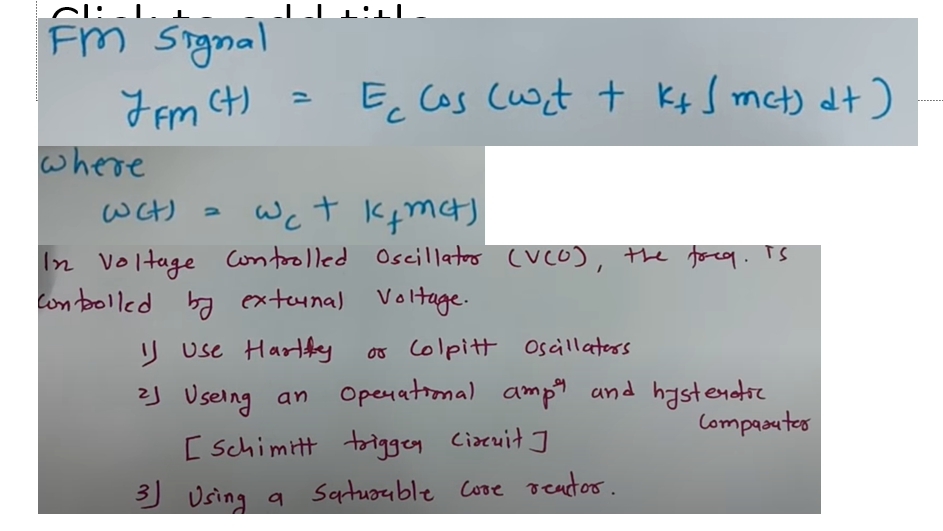 Click to add title
FM Signal
y FM (t) = Ec Cos (ωct + kf ∫ m(t) dt)
where
ω(t) = ωc + kf m(t)
In Voltage Controlled Oscillator (VCO), the freq. is
Controlled by external Voltage.
1) Use Hartley or Colpitt Oscillators
2) Useing an Operational ampr and hysteretic
Comparator
[ Schimitt trigger Circuit ]
3) Using a Saturable Core reactor.